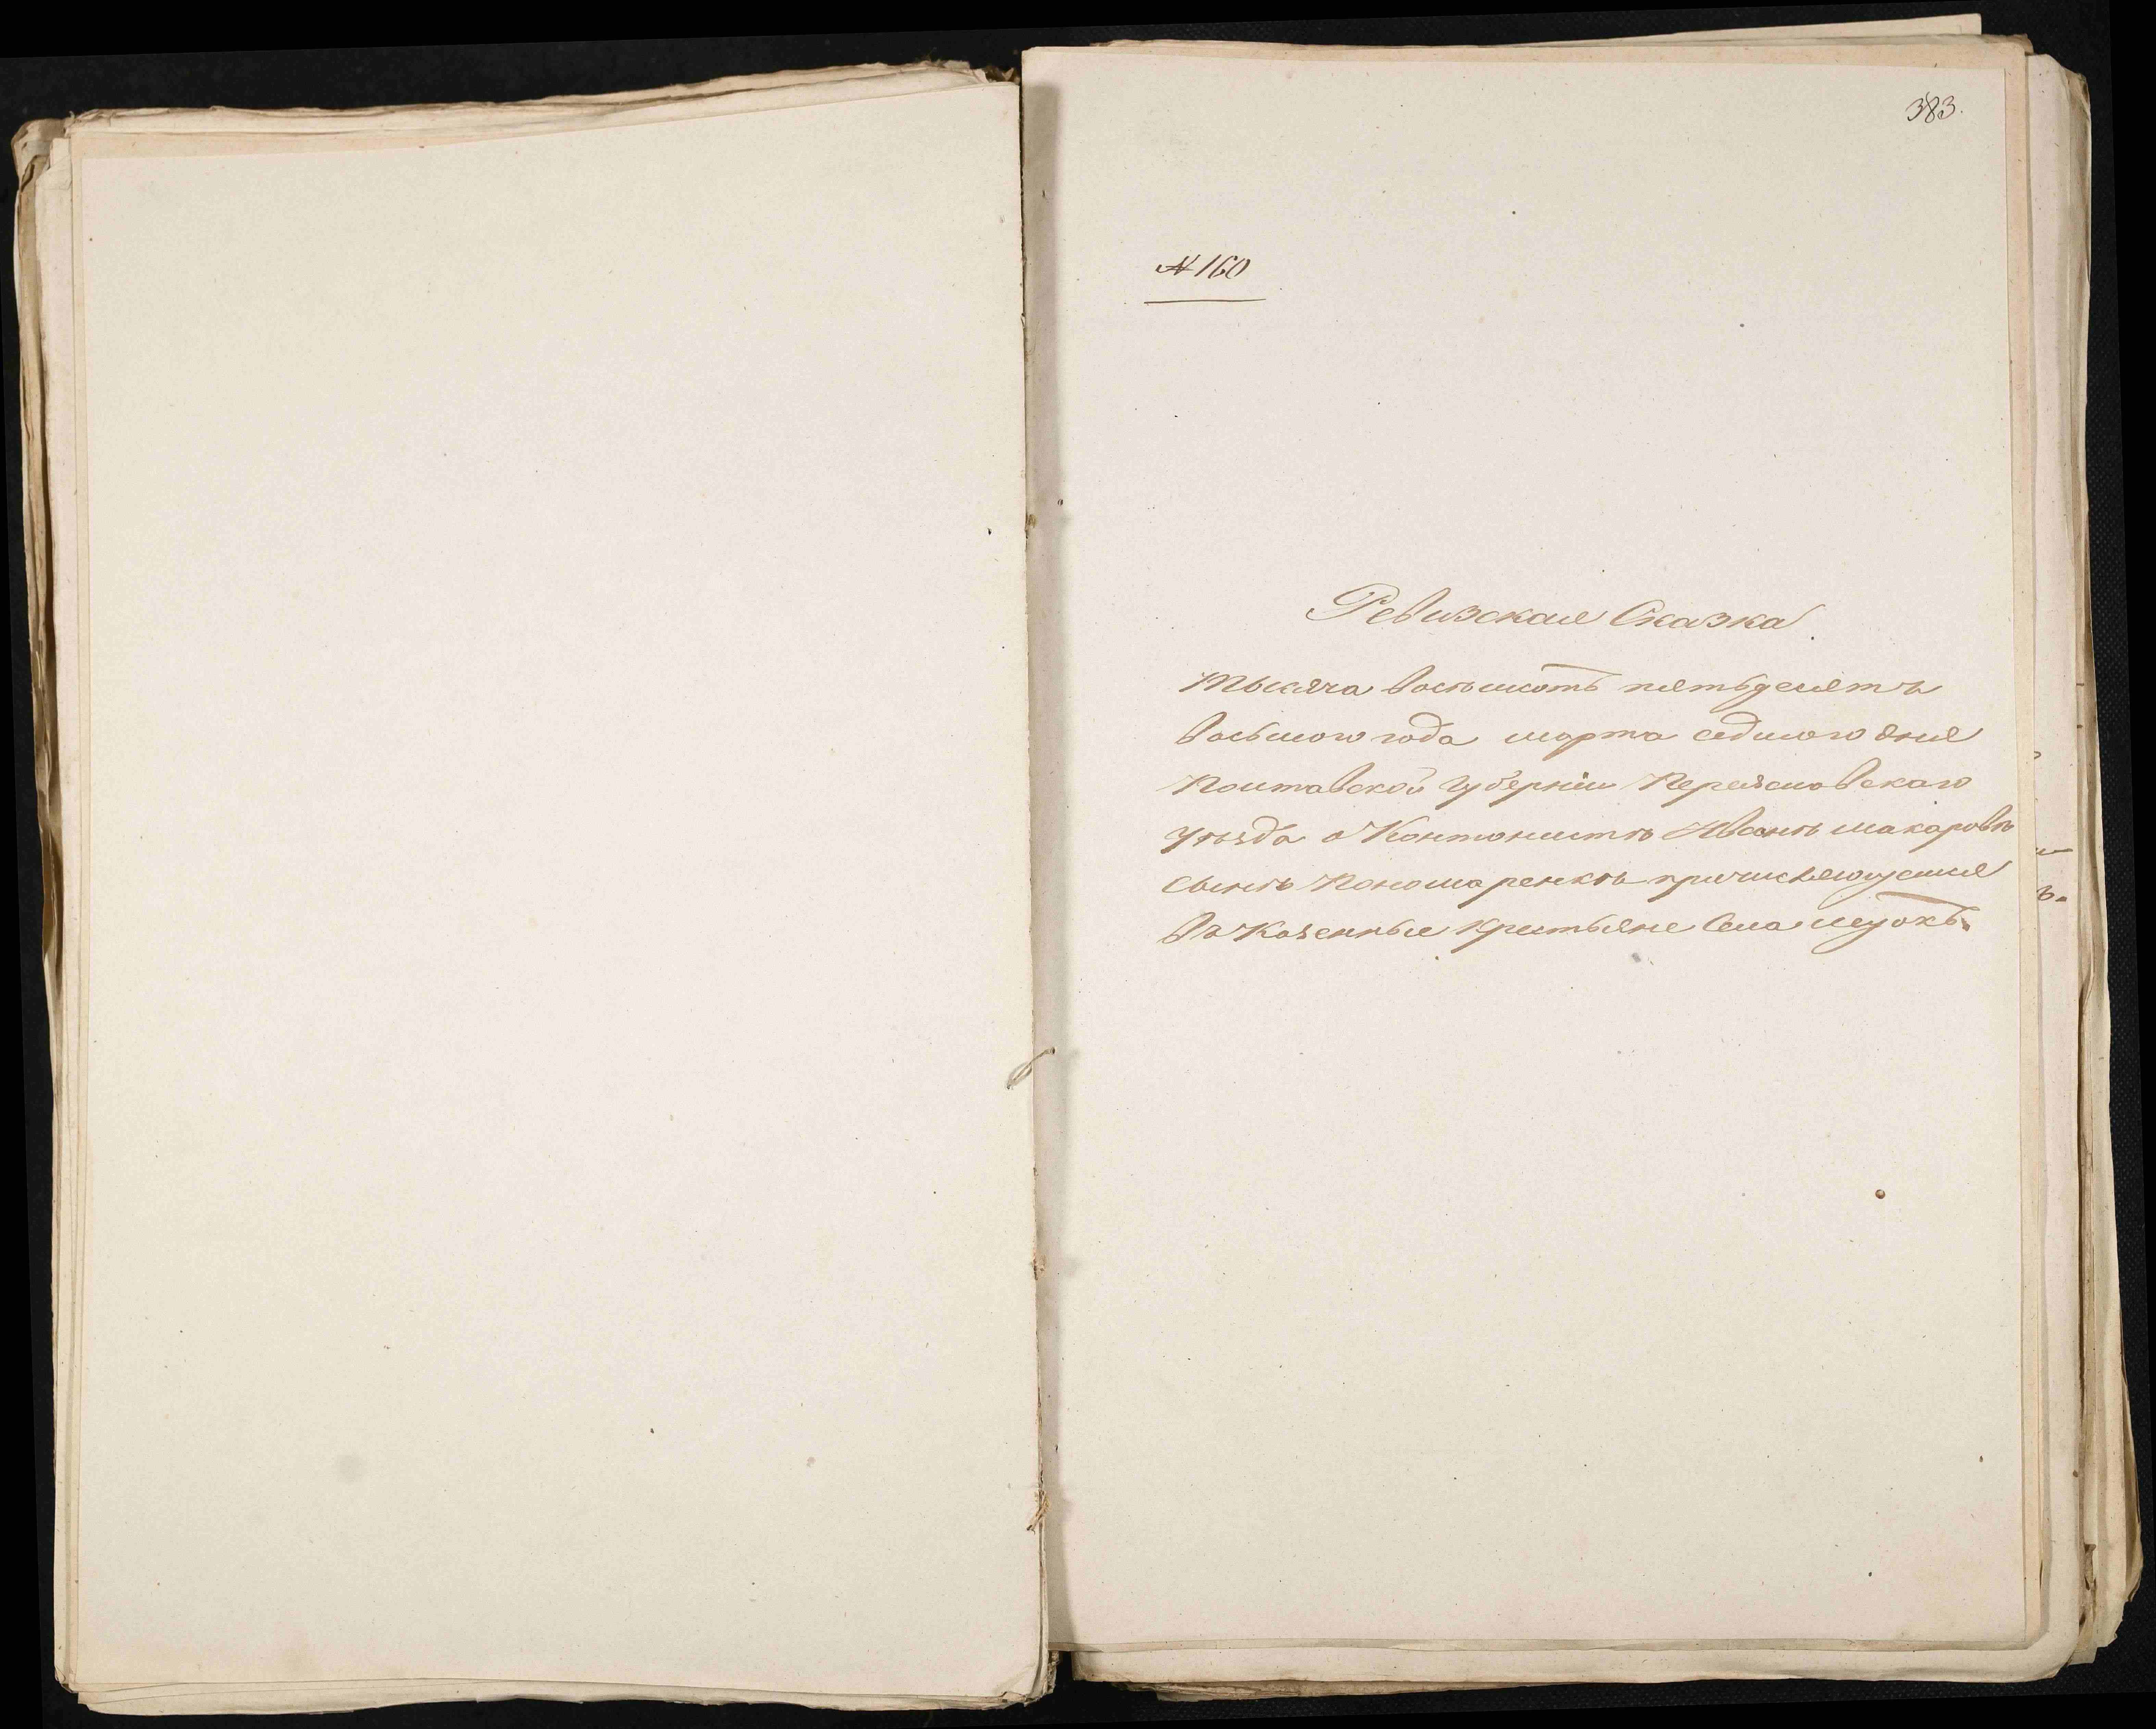 383.
№ 160
Ревизская Сказка
Тысяча восемьсотъ пятьдесятъ
восьмого года марта седмого дня
Полтавской Губерніи Переяславскаго
уѣзда о Кантонистѣ Иванѣ Макаровѣ
сынѣ Пономаренкѣ причисляющемся
въ Казенные Крестьяне Села